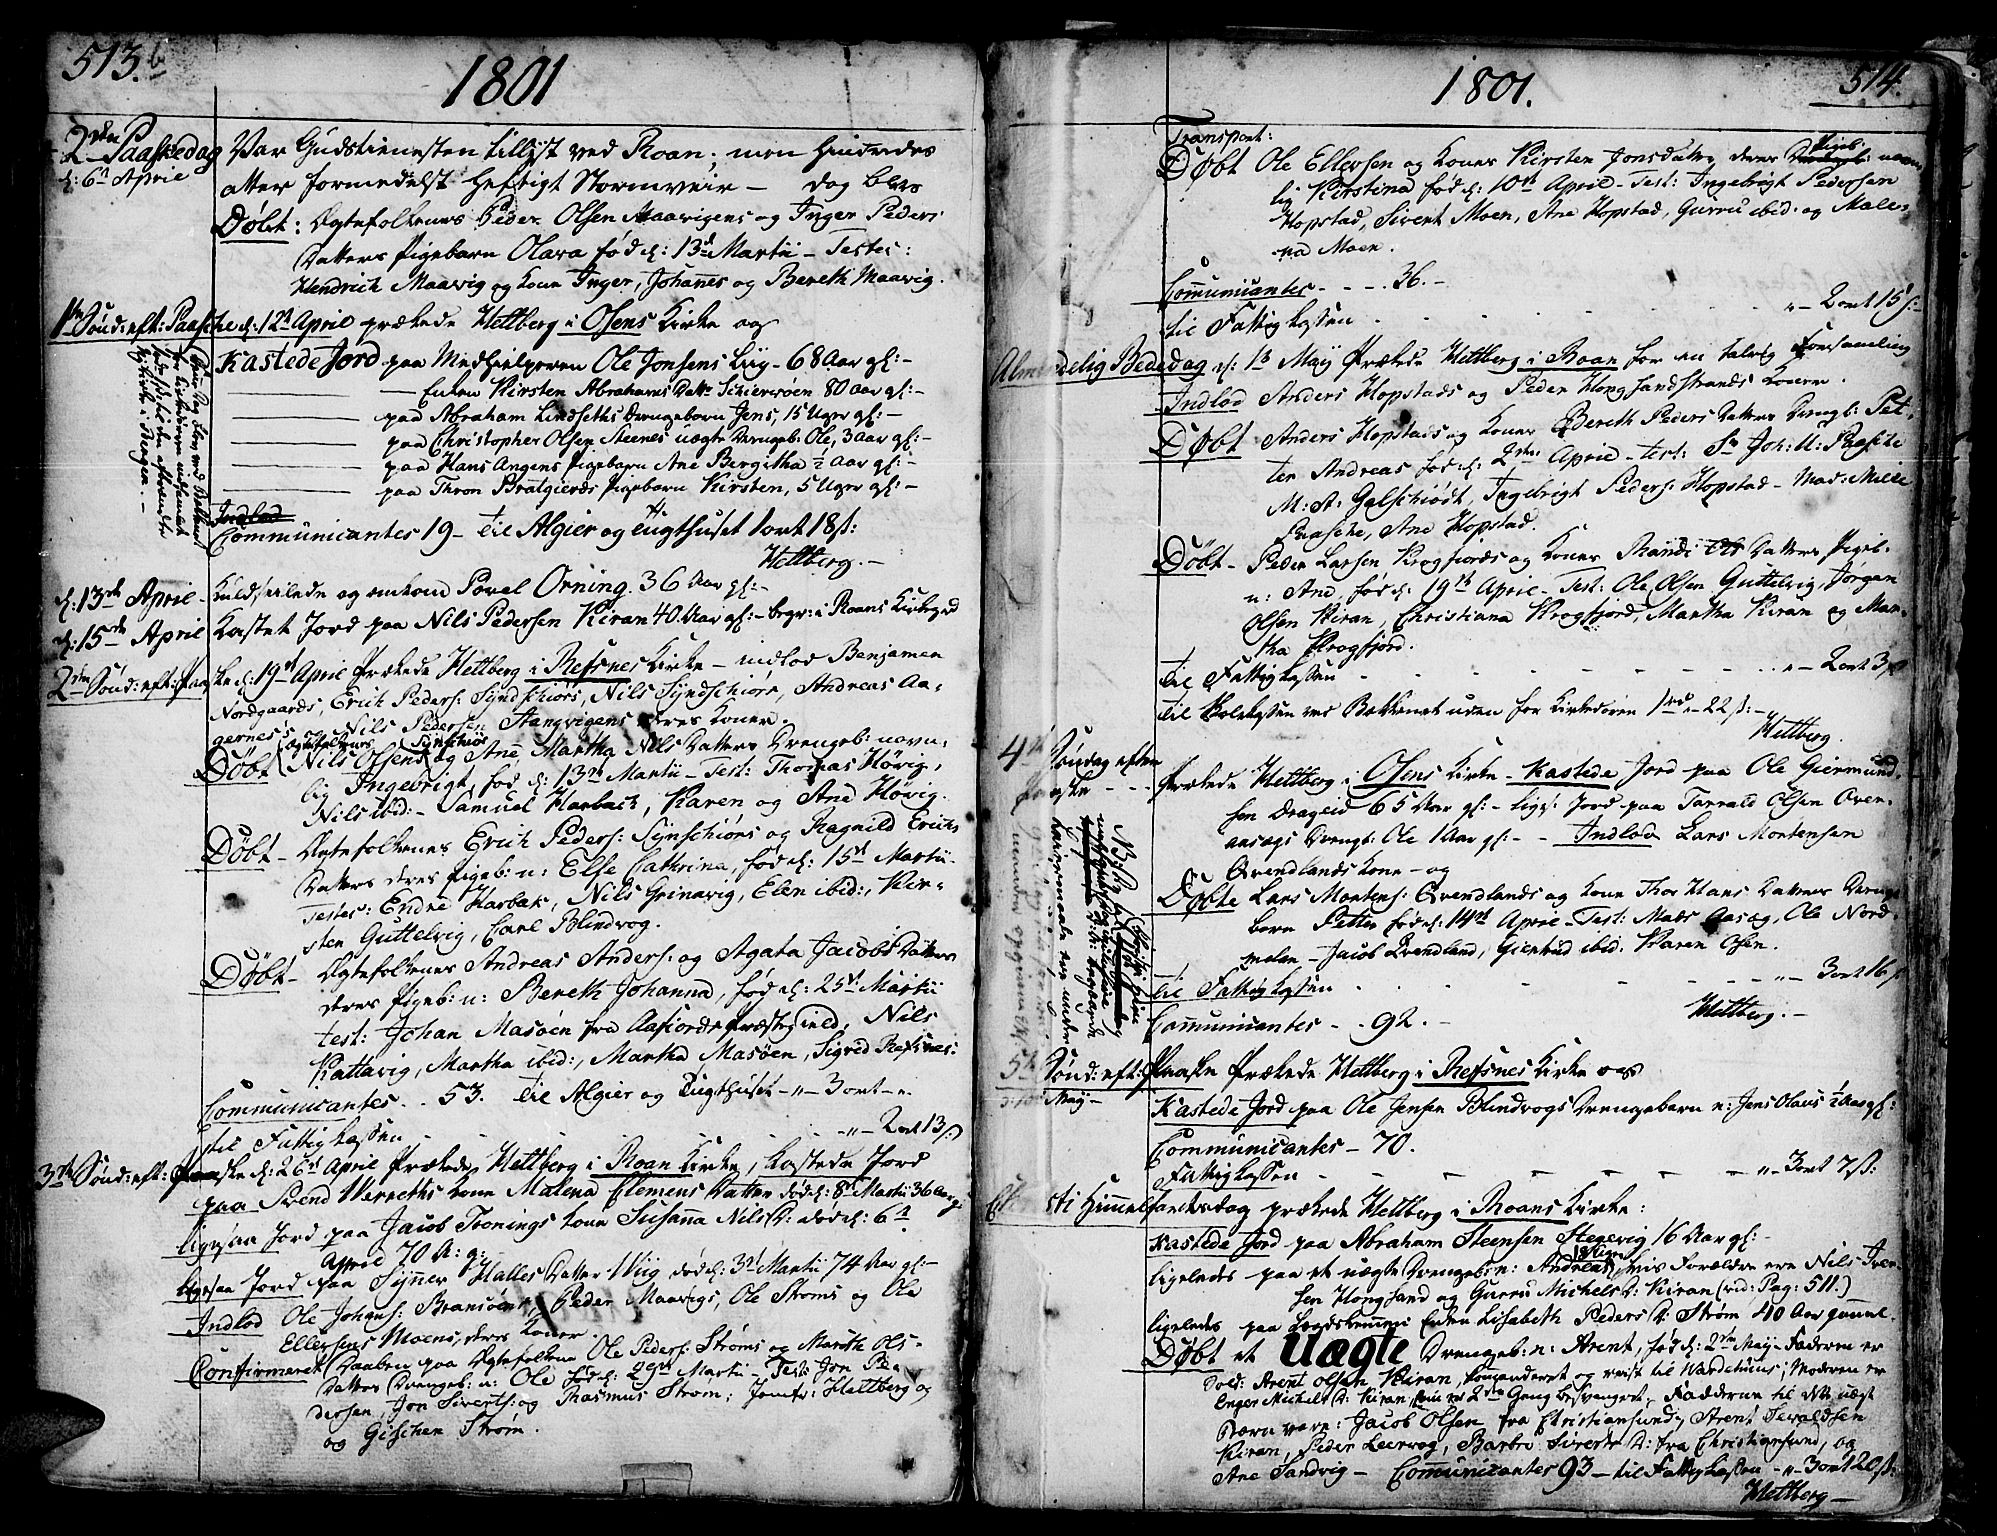 513.b
1801
2den Paaskedag
d: 6te Aprile
Var Gudstienesten tillyst ved Roan; men hindredes
atter formedelst heftigt Stormveir – dog blev
Døbt: Ægtefolkenes Peder Olsen Maavigens og Inger Peders
Datters pigebarn Olava fød d: 13de Martii – Testes:
Hendrich Maavig og kone Inger, Johannes og Bereth Maavig.
1ste Sønd: eft: Paasche d: 12te Aprile prækede Hettberg i Osens Kirke og
Kastede Jord paa Medhielperen Ole Jonsens Liig – 68 Aar gl:–
– Enken Kirsten Abrahams Datter Skierevøen 80 Aar gl:–
paa Abraham Lindseths Drengebarn Jens, 15 Uger gl:–
paa Christopher Olsen Steenes uægte Drengeb: Ole, 3 Aar gl:–
paa Hans Angens Pigebarn Ane Bergitha ½ Aar gl:–
paa Thron Bratgierds Pigebarn Kirsten, 5 Uger gl:–
Indlod
Communicantes 19 – til Algier og Tugthuset 1 ort 18 ß:
Hettberg.–
d: 13de April – Kuldseilede og omkom Povel Orning 36 Aar gl:–
d: 15de April Kastet Jord paa Nils Pedersen Kiran 40 Aar gl:– begr: i Roans Kirkegrd
2den Sønd: eft: Paaske d: 19de April Prækede Hettberg i Refsnes Kirke – indlod Benjamen
Nordgaards, Erich Peders: Syndschiørs, Nils Syndschiørs, Andreas Aa-
gernes's og Nils Pedersen Stangvigens deres koner.
Døbt Ægtefolkenes Nils Olsens Synschiørs og Ane Martha Nils Datters Drengeb: navn-
lig Ingebrigt, fød d: 13de Martii – Test: Thomas Høvig,
Nils ibid: – Samuel Harbach, Karen og Ane Høvig.
Døbt – Ægtefolkenes Erich Peders: Synschiørs og Ragnild Erichs
Datters deres pigeb: n: Else Cathrina, fød d: 15de Martii –
Testes: Endre Harbak, Nils Grinavig, Elen ibid:, Kir-
sten Guttelvig, Carl Blindvog.
Døbt – Ægtefolkenes Andreas Anders: og Agata Jacobs Datters
deres pigeb: n: Bereth Johanna, fød d: 25de Martii
test: Johan Masøen fra Aafiords Præstegield, Nils
Kattavig, Martha ibid:, Martha Masøen, Sigrid Refsnes:
Communicantes . . 53. til Algier og Tugthuset – „ – 3 ort – „
til Fattigkassen – „ – 2 ort 13 ß
3die Sønd: eft: Paaske d: 26de April Prækede Hettberg i Roan Kirke, kastede Jord
paa Svend Werreths kone Malena Clemens Datter død d: 8de Martii 36 Aar gl:
ligesaa Jord paa Jacob Tronings kone Susanna Nils D: død d: 6te
April 70 A: g:
ligesaa Jord paa Synnev Halles Datter Wiig død d: 3de Martii 74 Aar gl:–
Indlod Ole Johans: Bransøens, Peder Maavigs, Ole Strøms og Ole
Ellersens Moens, deres koner.
Confirmeret Daaben paa Ægtefolkene Ole Peders: Strøms og Mareth Ols-
Datters Drengeb: n: Ole fød d: 29de Martii – Test: Jon Pe-
dersen, Jon Siverts: og Rasmus Strøm; Jomfr: Hettberg og
og Gjschen Strøm.
1801.
514.
Transport:
Døbt Ole Ellersen og Koner Kirsten Jonsdatter deres Pigeb: navn-
lig Kirstina fød d: 10de April – Test: Ingebrigt Pedersen
Hopstad, Sivert Moen, Ane Hopstad, Gurru ibid: og Male-
na Moen.
Communicantes - - - - 36. –
til Fattigkassen „ – 2 ort 15 ß:
Almindelig Bededag d: 1te May Prækede Hettberg i Roan for en talrig Forsamling
Indlod Anders Hopstads og Peder Hongsandstrands koner.
Døbt Anders Hopstads og koner Bereth Peders Datters Drengb: Pet-
ter Andreas fød d: 2den Aprile – Test: Sr Joh: U: Paasche
M: A: Gelschiødt, Ingebrigt Peders: Hopstad – Mad: Milde
Paasche, Ane Hopstad.
Døbt – Peder Larsen Krogfiords og koner Randi Ols Datters Pigeb:
n: Ane, fød d: 19de April – Test: Ole Olsen Guttelvig, Jørgen
Olsen Kiran, Christiana Krogfjord, Martha Kiran og Mar-
tha Krogfjord.
til Fattigkassen „ – 2 ort 3 ß
til Volckssen ved Bekkenet uden for Kirkedøren 1 rd „ 22 ß: –
Hettberg.
4de Søndag efter
Paaske - - - Prækede Hettberg i Osens Kirke – Kastede Jord paa Ole Giermund-
sen Drageid 65 Aar gl: – liges: Jord paa Tarrald Olsen Over-
aasægs Drengb: Ole 1 Aar gl: – – Indlod Lars Mortensen
Qvendlands Kone – og
Døbte Lars Mortens: Qvendlands og kone Thor Hans Datters Drenge-
barn Petter fød d: 14de April – Test: Mads Aasæg, Ole Nord-
melen – Jacob Qvendland, Giertrud ibid. Karen Osen.
til Fattigkassen „ – 3 ort 16 ß
Communicantes - . 92. –
Hettberg. –
5te Sønd: eft: Paaske Prækede Hettberg i Refsnes Kirke og
May –
Kastede Jord paa Ole Jensen Blindvogs Drengebarn n: Jens Olaus ½ Aar gl:
Communicantes – 70.
Fattigkassen „ – 3 ort 7 ß:
Christi Himmelfartsdag prækede Hettberg i Roans Kirke:
Kastede Jord paa Abraham Steensen Stegevig 16 Aar gl: –
ligeledes paa et uægte Drengeb: n: Andreas hvis Forældre ere Nils Iver-
sen Hongsand og Gurru Michels D: Kiran (vid: Pag: 511.)
ligeledes paa Enken Lisabeth Peders D: Strøm 40 Aar gammel
Døbt et Uægte Drengeb: n: Arent, fød d: 2den May – Faderen er
Sold: Arent Olsen Kiran, Commanderet og reist til Wardehuus; Moderen er
Inger Michels D: Kiran, som er 2den Gang besvangret, Fadderne til dette uægte
Barn vare: Jacob Olsen fra Christiansund, Arent Sewaldsen
Kiran, Peder Leervog, Barbro Siverts D: fra Christiansund, og
Ane Sandvig – Communicantes 93 – til Fattigkassen – „ – 3 ort 20 ß:
Hettberg –